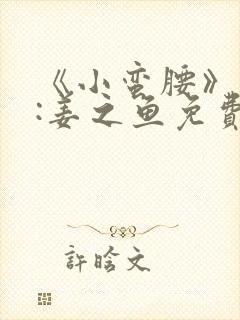 《小蛮腰》
:姜之鱼免費
許晗文